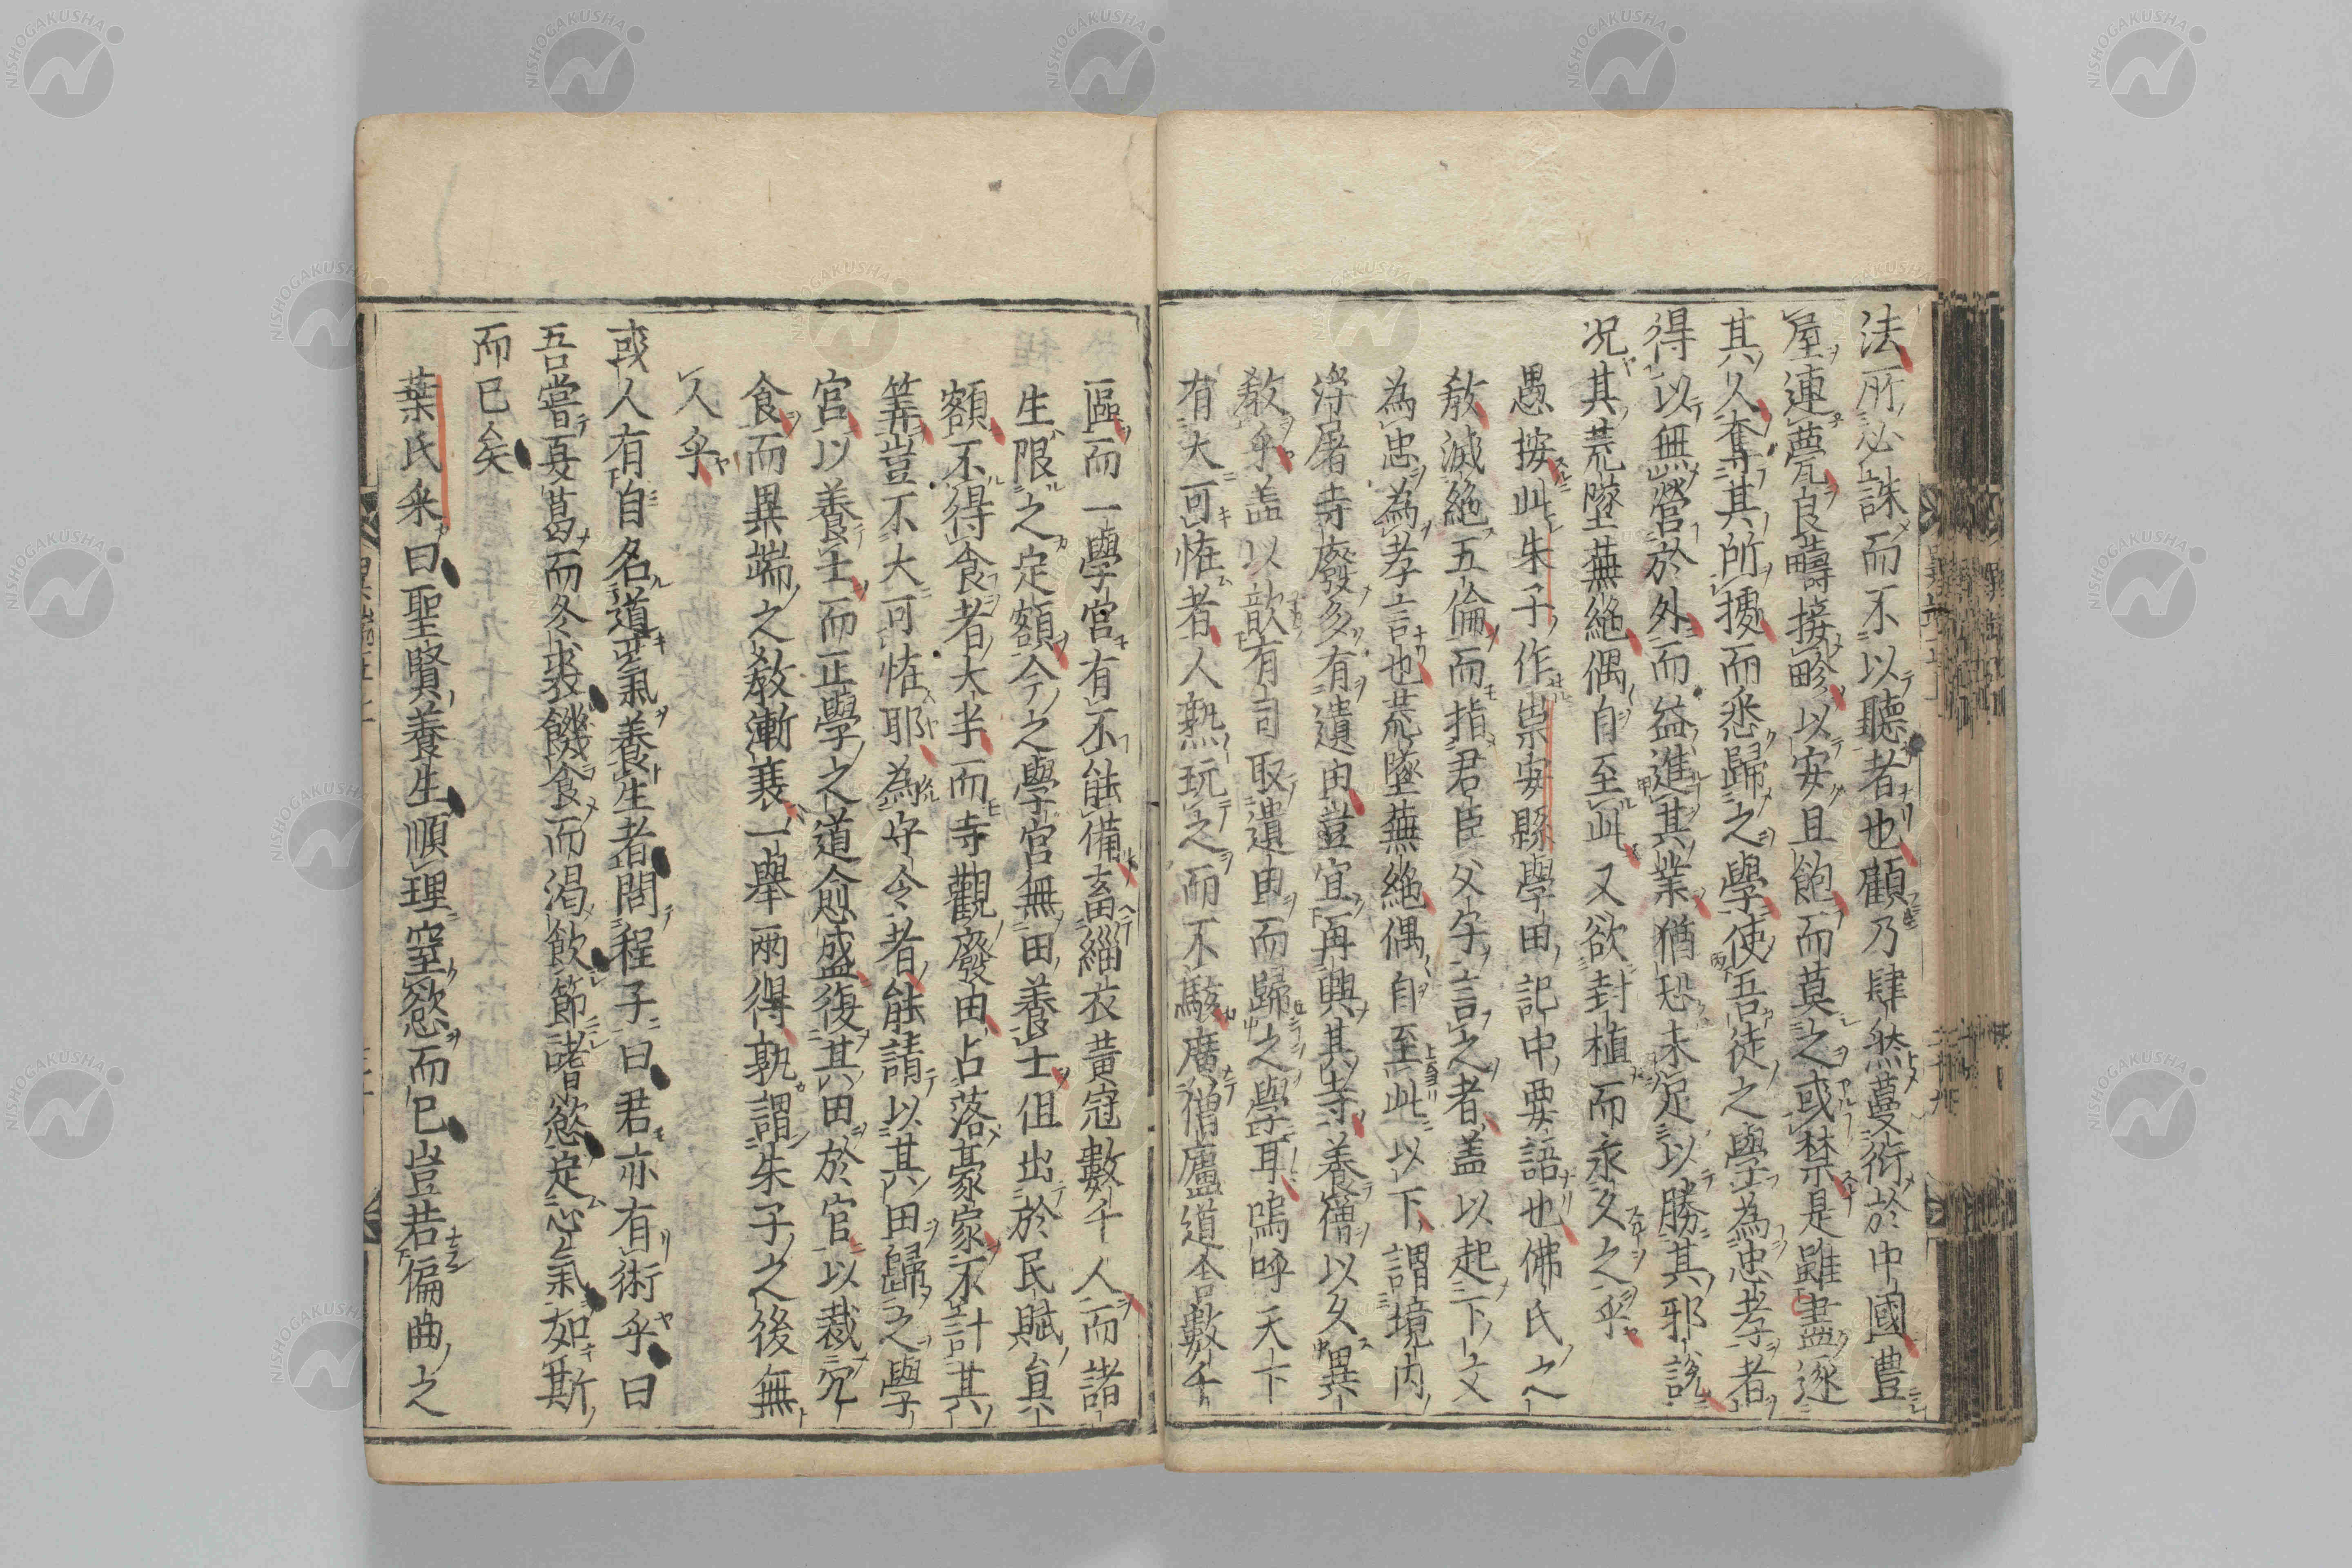 法所必誅而不以聽者也顧乃肆然蔓衍於中國豊
屋連甍良疇接畛以安且飽而莫之或禁是雖盡逐
其人奪其所據而悉歸之學使吾徒之學為忠孝者
得以無營於外而益進其業猶恐未㝎以勝其邪說
况其荒墜蕪絶偶自至此又欲封植而永久之乎
愚按此朱子作崇安縣學田記中要語也佛氏之
教滅絶五倫而指君臣父子言之者盖以起下文
為忠為孝言也荒墜蕪絶偶自至此以下謂境内
浮屠寺廢多有遺田豈宜再興其寺養僧以久異
教乎盖以歆有司取遺田而歸之學耳嗚呼天下
有大可恠者人熟玩之而不駭廣僧廬道舍數千
區而一學官有不能備畜緇衣黃冠數千人而諸
生限之定額今之學官無田養士但出於民賦負
額不得食者大半而寺觀廢田占落豪家不計其
筭豈不大可恠耶為守令者能請以其田歸之學
官以養士而正學之道愈盛復其田於官以裁冗
食而異端之教漸衰一舉兩得孰謂朱子之後無
人乎
或人有自名道氣養生者問程子曰君亦有術乎曰
吾嘗夏葛而冬裘饑食而渴飲節嗜慾定心氣如斯
而已矣
葉氏采曰聖賢養生順理窒慾而已豈若偏曲之
NISHOGAKUSHA